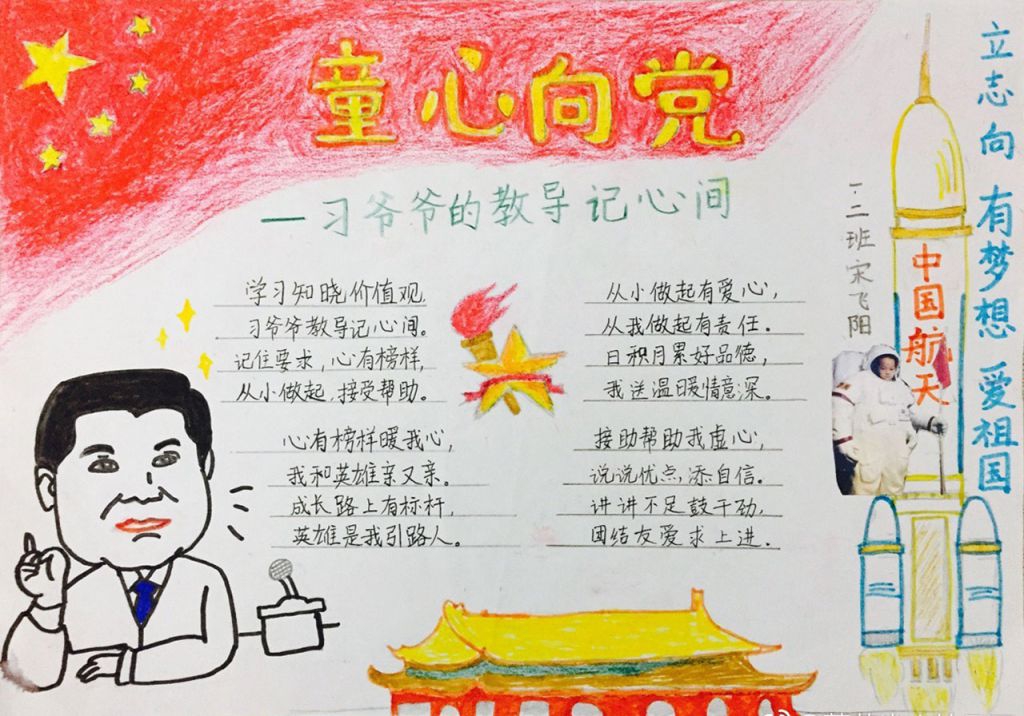 童心向党
—习爷爷的教导记心间
学习知晓价值观,
习爷爷教导记心间。
记住要求,心有榜样,
从小做起,接受帮助。
心有榜样暖我心,
我和英雄亲又亲。
成长路上有标杆,
英雄是我引路人。
从小做起有爱心,
从我做起有责任.
日积月累好品德,
我送温暖情意深.
接助帮助我虚心,
说说优点,添自信.
讲讲不足鼓干劲,
团结友爱求上进.
一.二班 宋飞阳
中国航天
立志向 有梦想 爱祖国